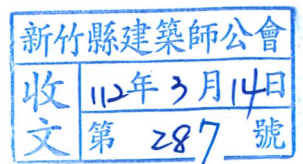 新竹縣建築師公會
收文
112年3月14日
第 287 號